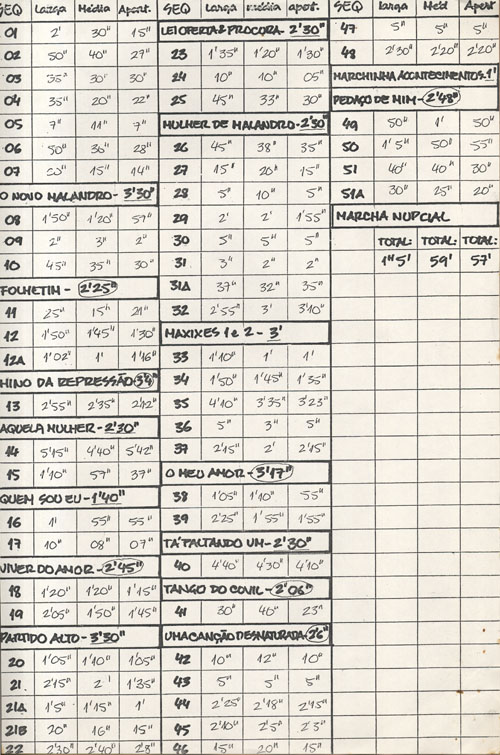 SEQ Larga Média Apert.
01 2' 30" 15"
02 50" 40" 27"
03 35" 30" 30"
04 35" 20" 22"
05 7" 11" 7"
06 50" 30" 28"
07 20" 15" 14"
O NOVO MALANDRO - 3'30"
08 1'50" 1'20" 57"
09 2" 3" 2"
10 45" 35" 30"
FOLHETIM - 2'25"
11 25" 15" 21"
12 1'50" 1'45" 1'30"
12A 1'02" 1' 1'16"
HINO DA REPRESSÃO
13 2'55" 2'35" 2'12"
AQUELA MULHER - 2'30"
14 5'15" 4'40" 5'42"
15 1'10" 57" 37"
QUEM SOU EU - 1'40"
16 1' 55" 55"
17 10" 08" 07"
VIVER DO AMOR - 2'45"
18 1'20" 1'20" 1'15"
19 2'05" 1'50" 1'45"
PARTIDO ALTO - 3'30"
20 1'05" 1'10" 1'05"
21 2'15" 2' 1'35"
21A 1'5" 1'15" 1'
21B 20" 16" 15"
22 2'30" 2'40" 2'8"
SEQ Larga média apert.
LEI OFERTA & PROCURA - 2'30"
23 1'35" 1'20" 1'30"
24 10" 10" 05"
25 45" 33" 30"
MULHER DE MALANDRO - 2'30"
26 45" 38" 35"
27 15" 20" 15"
28 5" 10" 5"
29 2' 2' 1'55"
30 5" 5" 5"
31 3" 2" 2"
31A 37" 32" 35"
32 2'55" 3' 3'10"
MAXIXES 1 e 2 - 3'
33 1'10" 1' 1'
34 1'50" 1'45" 1'35"
35 4'10" 3'35" 3'23"
36 5" 3" 5"
37 2'15" 2' 2'15"
O MEU AMOR - 3'17"
38 1'05" 1'10" 55"
39 2'25" 1'55" 1'55"
TÁ FALTANDO UM - 2'30"
40 4'40" 4'30" 4'10"
TANGO DO COVIL - 2'06"
41 30" 40" 23"
UMA CANÇÃO DESNATURADA
42 10" 12" 10"
43 5" 5" 5"
44 2'25" 2'18" 2'15"
45 2'10" 2'5" 2'3"
46 15" 20" 15"
SEQ larga Méd Apert
47 5" 5" 5"
48 2'30" 2'20" 2'20"
MARCHINHA ACONTECIMENTOS. 1'
PEDAÇO DE MIM - 2'48"
49 50" 1' 50"
50 1'5" 50" 55"
51 40" 40" 30"
51A 30" 25" 20"
MARCHA NUPCIAL
TOTAL: TOTAL: TOTAL:
1H5' 59' 57'